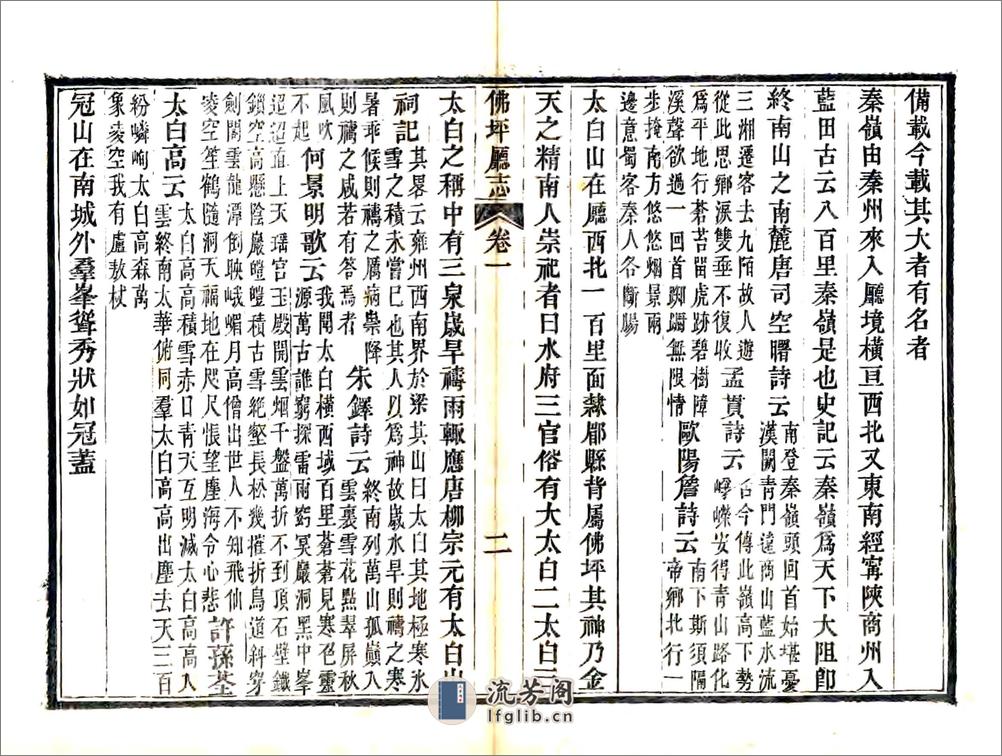 備載今載其大者有名者
秦嶺由秦州來入廳境橫亘西北又東南經甯陝商州入
藍田古云八百里秦嶺是也史記云秦嶺爲天下大阻卽
終南山之南麓唐司空曙詩云南登秦嶺頭回首始堪憂漢闕青門遠商山藍水流
三湘遷客去九陌故人遊從此思鄉淚雙垂不復收孟貫詩云古今傳此嶺高下勢崢嶸安得青山路化
爲平地行蒼苔畱虎跡碧樹障溪聲欲過一回首踟躕無限情歐陽詹詩云南下斯須隔帝鄉北行一
步掩南方悠悠烟景兩邊意蜀客秦人各斷腸
太白山在廳西北一百里面隸郿縣背屬佛坪其神乃金
天之精南人崇祀者曰水府三官俗有大太白二太白三
佛坪廳志 卷一 二
太白之稱中有三泉歲旱禱雨輒應唐柳宗元有太白山
祠記其畧云雍州西南界於梁其山曰太白其地極寒氷雪之積未嘗已也其人以爲神故歲水旱則禱之寒
暑乖候則禱之厲病祟降則禱之咸若有答焉者朱鐸詩云終南列萬山孤巔入雲裏雪花點翠屏秋
風吹不起何景明歌云我聞太白橫西域百里蒼蒼見寒色靈源萬古誰窮探雷雨窈冥巖洞黑中峯
迢迢直上天瑤宮玉殿開雲烟千盤萬折不到頂石壁鐵鎖空高懸陰巖皚皚積古雪絕壑長松幾摧折鳥道斜穿
劍閣雲龍潭倒映峨嵋月高僧出世人不知飛仙凌空笙鶴隨洞天福地在咫尺悵望塵海令心悲許孫荃
太白高云太白高高積雪赤日青天互明滅太白高高人雲終南太華俯同羣太白高高出塵去天三百
紛嶙峋太白高森萬象凌空我有盧敖杖
冠山在南城外羣峯聳秀狀如冠蓋
流芳阁
lfglib.cn